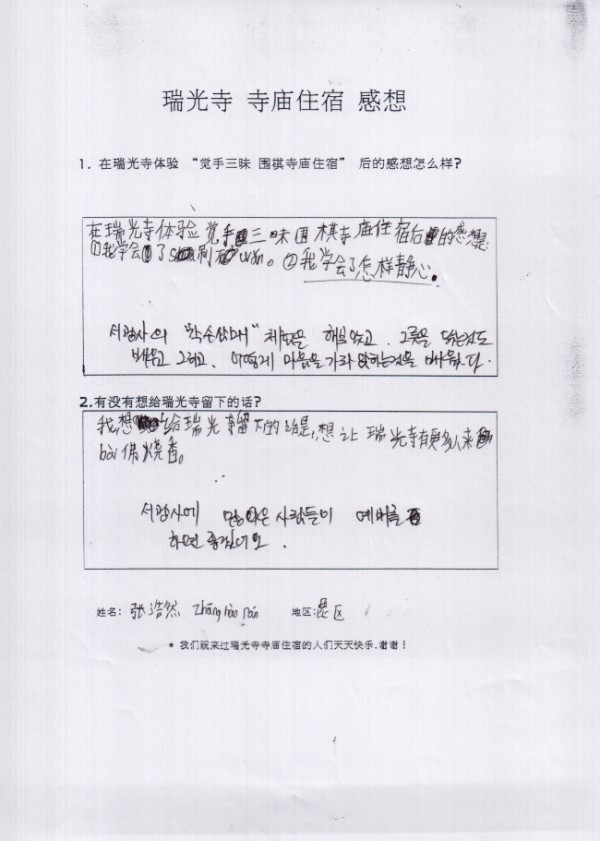 瑞光寺 寺庙住宿 感想
1. 在瑞光寺体验 “觉手三昧 围棋寺庙住宿” 后的感想怎么样?
在瑞光寺体验觉手三昧围棋寺庙住宿后的感想是:
①我学会了刷 wǎn。②我学会了怎样静心。
서광사의 체험을 해보았고. 그릇을 닦는것도
배우고 그리고. 어떻게 마음을 가라앉히는것을 배웠다.
2.有没有想给瑞光寺留下的话?
我想给瑞光寺留下的话是,想让瑞光寺有更多人来
bài佛烧香。
서광사에 많은 사람들이 예배를
하면 좋겠네요.
姓名: 张浩然 zhāng hào rán 地区:
* 我们祝来过瑞光寺寺庙住宿的人们天天快乐.谢谢!